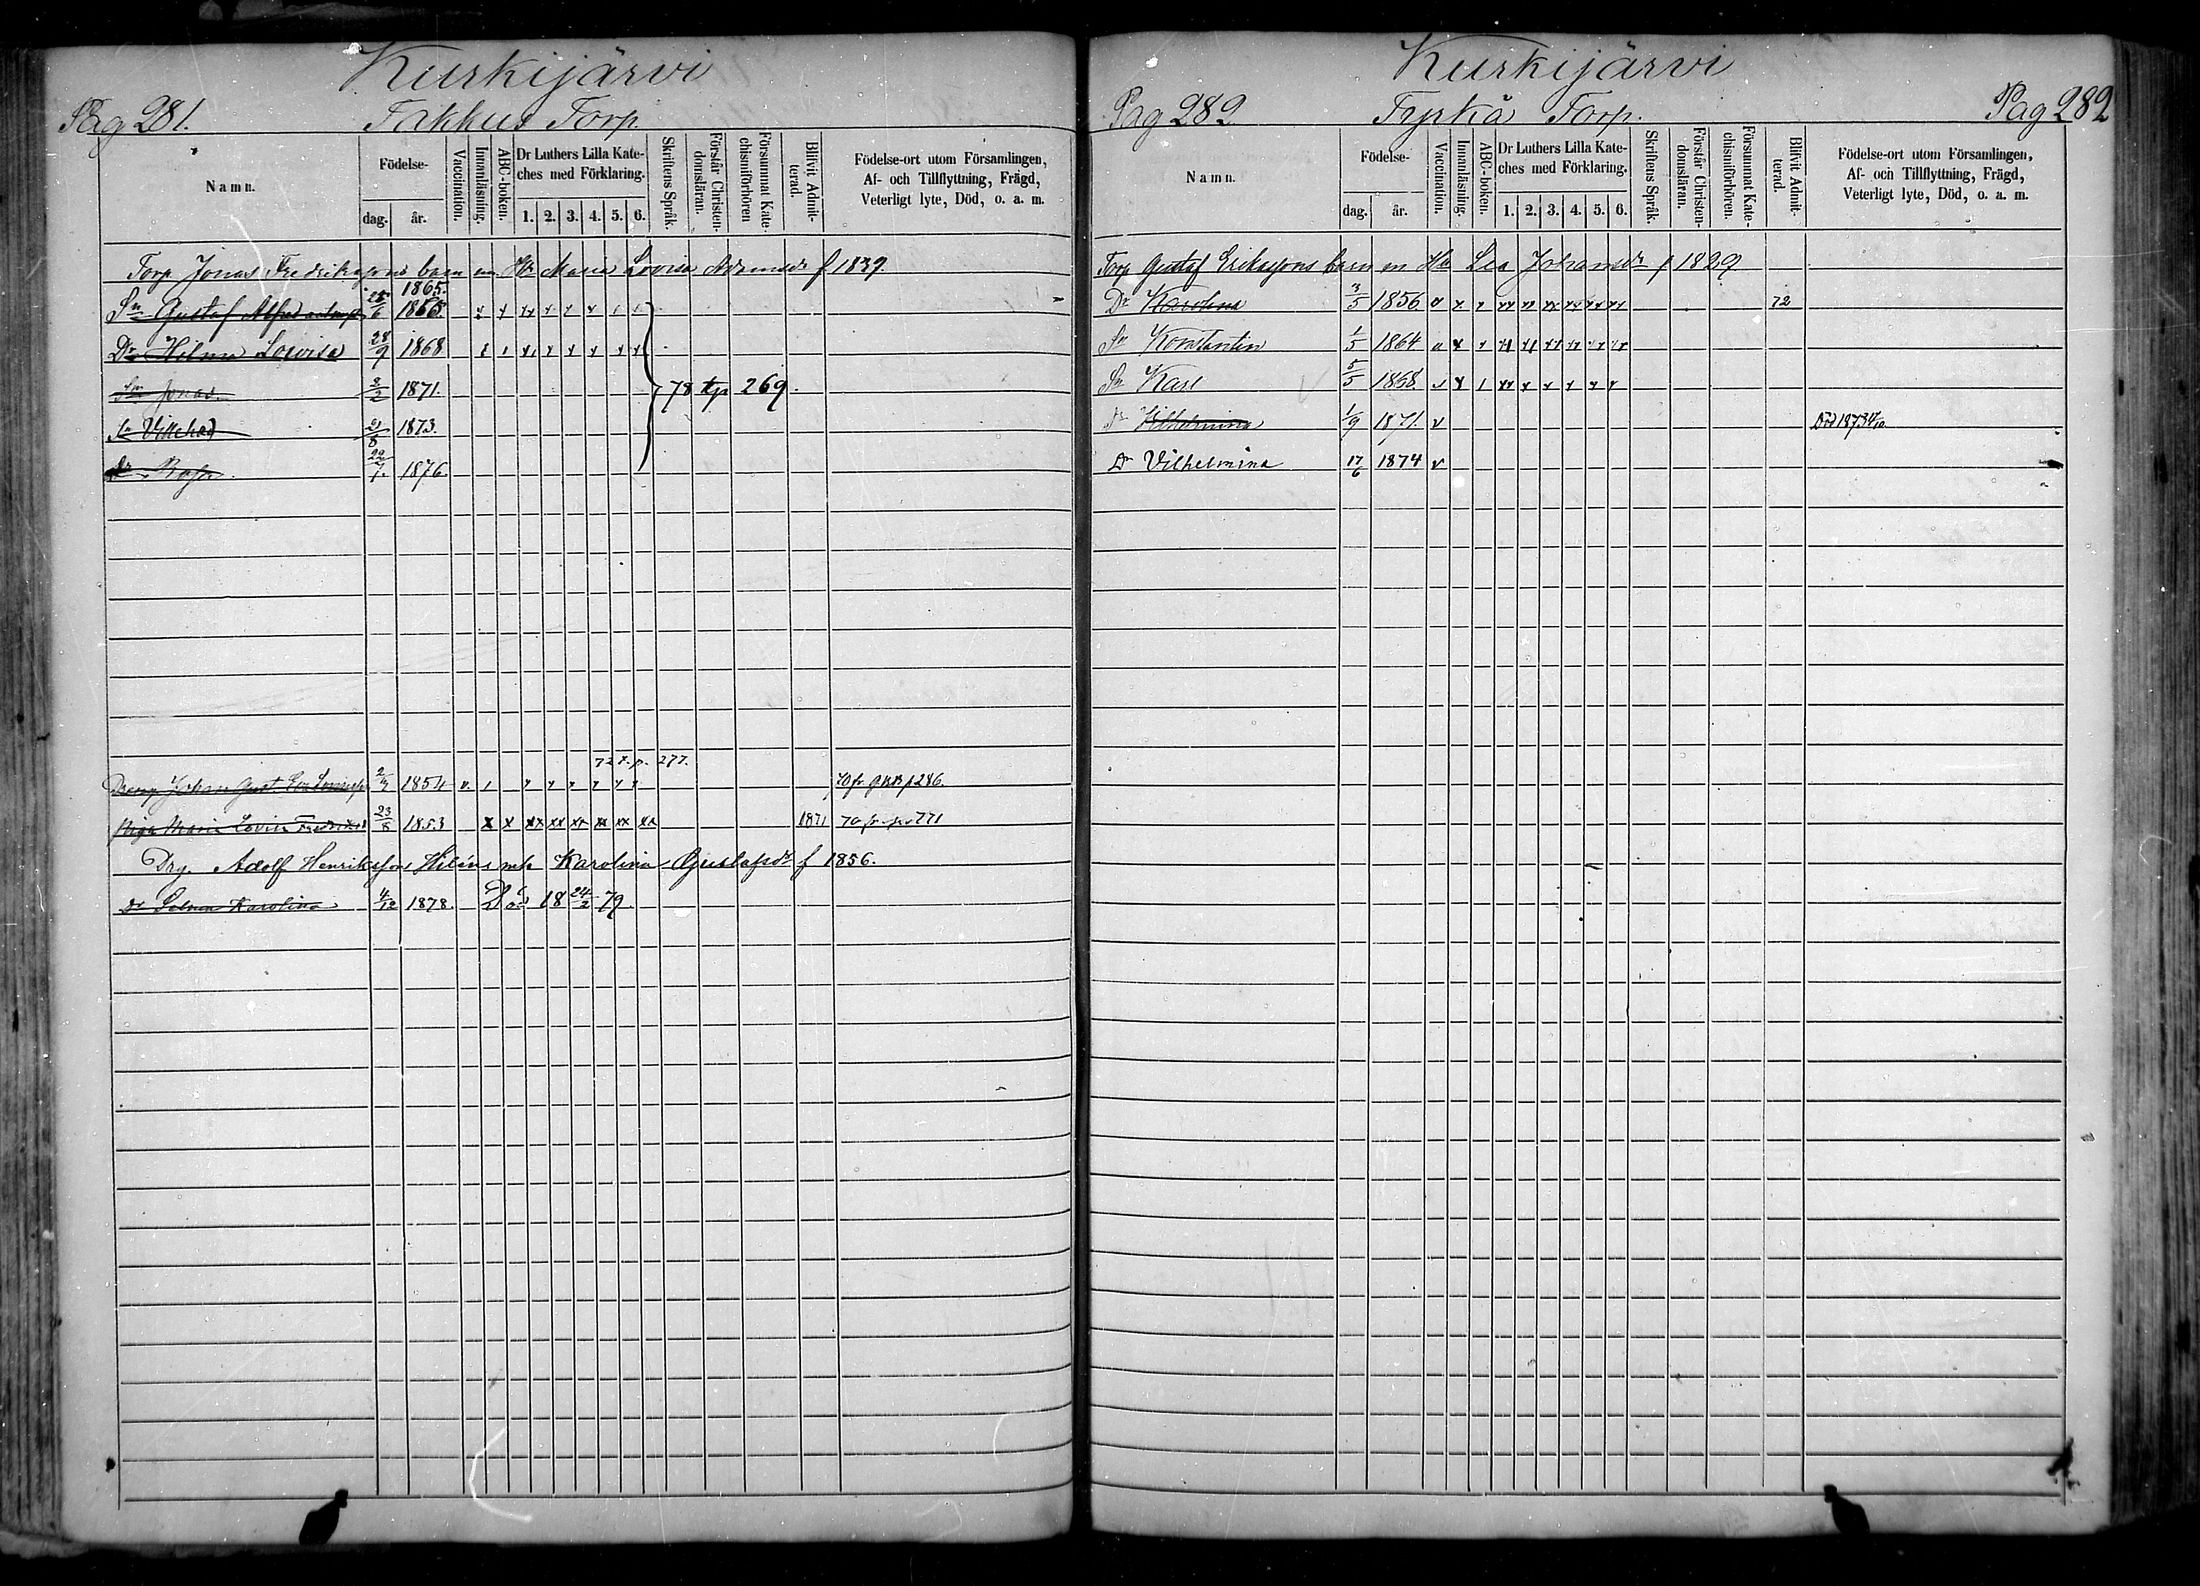 Kurkijärvi
Pag 281.
Takkus Torp.
Namn.
Födelse-
dag. år.
Vaccination.
Innanläsning.
ABC-boken.
Dr Luthers Lilla Kate-
ches med Förklaring.
1. 2. 3. 4. 5. 6.
Skriftens Språk.
Förstår Christen-
domsläran.
Försummat Kate-
chismiförhören
Blifvit Admit-
terad.
Födelse-ort utom Församlingen,
Af- och Tillflyttning, Frägd,
Veterligt lyte, Död, o. a. m.
Torp. Jonas Fredrikssons barn m. H. Maria Lovisa Adamsdr f 1839.
1865.
Sn Gustaf Alfred 28/6 1865.
Dr Hilma Lovisa 28/9 1868
Sn Jonas 2/2 1871.
78 tp 269.
Sn Villehad 21/8 1873.
Dr Rosa 22/7. 1876.
72 t.p. 277.
Johan Gust. 1854 v. 70 fr. p 286.
Piga Maria Lovisa Fredriksd 23/8 1853 1871 70 fr. 771
Drg. Adolf Henrikssons Hiléns m. Karolina Gustafsdr f 1856.
Dr Selma Karolina 4/12 1878. Död 18 24/2 79.
Kurkijärvi
Pag 282
Tyrkö Torp.
Pag 282
Namn.
Födelse-
dag. år.
Vaccination.
Innanläsning.
ABC-boken.
Dr Luthers Lilla Kate-
ches med Förklaring.
1. 2. 3. 4. 5. 6.
Skriftens Språk.
Förstår Christen-
domsläran.
Försummat Kate-
chismiförhören.
Blifvit Admit-
terad.
Födelse-ort utom Församlingen,
Af- och Tillflyttning, Frägd,
Veterligt lyte, Död, o. a. m.
Torp Gustaf Erikssons barn m. H. Lea Johansdr f 1829
Dr Karolina 3/5 1856 72
Sn Konstantin 1/5 1864
Sn Karl 5/5 1868
Dr Vilhelmina 1/9 1871. v Död 1873
Dr Vilhelmina 17/6 1874 v